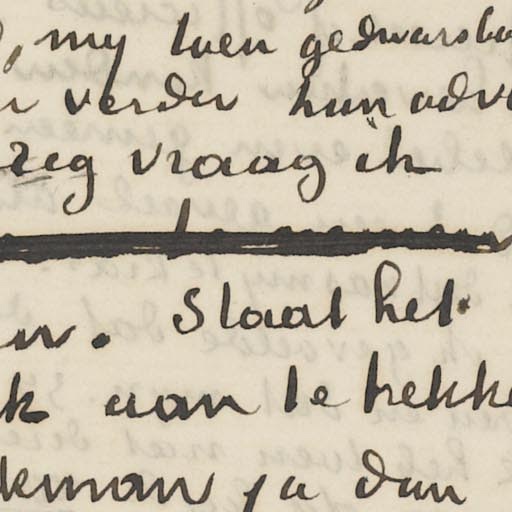 , my toen gedwarsbo
verder hun adv
zeg vraag ik
te nemen
Staat het
k aan te trekke
kman ja dan